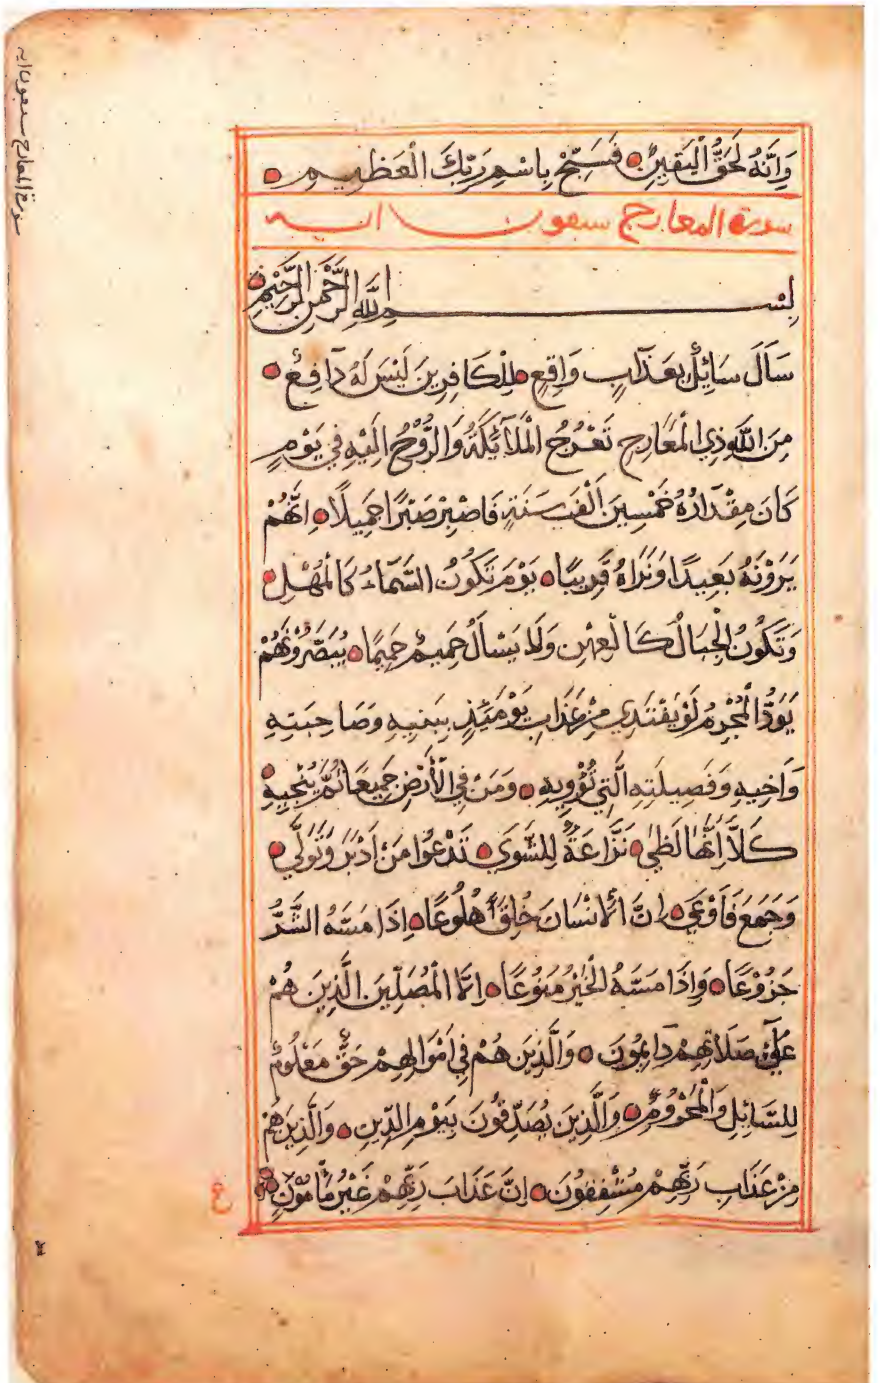 وَاِنَّهُ لَحَقُّ الْيَقِينِ فَسَبِّحْ بِاسْمِ رَبِّكَ الْعَظِيمِ
سورة المعارج سبعون اية
بِسْمِ اللّٰهِ الرَّحْمٰنِ الرَّحِيْمِ
سَاَلَ سَايِٕلٌ بِعَذَابٍ وَاقِعٍ لِلْكَافِرِينَ لَيْسَ لَهُ دَافِعٌ
مِنَ اللّٰهِ ذِي الْمَعَارِجِ تَعْرُجُ الْمَلَآئِكَةُ وَالرُّوْحُ اِلَيْهِ فِي يَوْمٍ
كَانَ مِقْدَارُهُ خَمْسِينَ اَلْفَ سَنَةٍ فَاصْبِرْ صَبْرًا جَمِيلًا اِنَّهُمْ
يَرَوْنَهُ بَعِيدًا وَنَرَاهُ قَرِيبًا يَوْمَ تَكُونُ السَّمَآءُ كَالْمُهْلِ
وَتَكُونُ الْجِبَالُ كَالْعِهْنِ وَلَا يَسْاَلُ حَمِيمٌ حَمِيمًا يُبَصَّرُوْنَهُمْ
يَوَدُّ الْمُجْرِمُ لَوْ يَفْتَدِي مِنْ عَذَابِ يَوْمَئِذٍ بِبَنِيهِ وَصَاحِبَتِهِ
وَاَخِيهِ وَفَصِيلَتِهِ الَّتِي تُؤْوِيهِ وَمَنْ فِي الْاَرْضِ جَمِيعًا ثُمَّ يُنْجِيهِ
كَلَّا اِنَّهَا لَظٰى نَزَّاعَةً لِلشَّوَي تَدْعُوا مَنْ اَدْبَرَ وَتَوَلّٰي
وَجَمَعَ فَاَوْعَي اِنَّ الْاِنْسَانَ خُلِقَ هَلُوعًا اِذَا مَسَّهُ الشَّرُّ
جَزُوْعًا وَاِذَا مَسَّهُ الْخَيْرُ مَنُوْعًا اِلَّا الْمُصَلِّينَ الَّذِينَ هُمْ
عَلٰي صَلَاتِهِمْ دَايِمُونَ وَالَّذِينَ هُمْ فِي اَمْوَالِهِمْ حَقٌّ مَعْلُومٌ
لِلسَّايِٕلِ وَالْمَحْرُومِ وَالَّذِينَ يُصَدِّقُونَ بِيَوْمِ الدِّينِ وَالَّذِينَ هُمْ
مِنْ عَذَابِ رَبِّهِمْ مُشْفِقُونَ اِنَّ عَذَابَ رَبِّهِمْ غَيْرُ مَاْمُوْنٍ
ع
سورة المعارج سبعون ايه